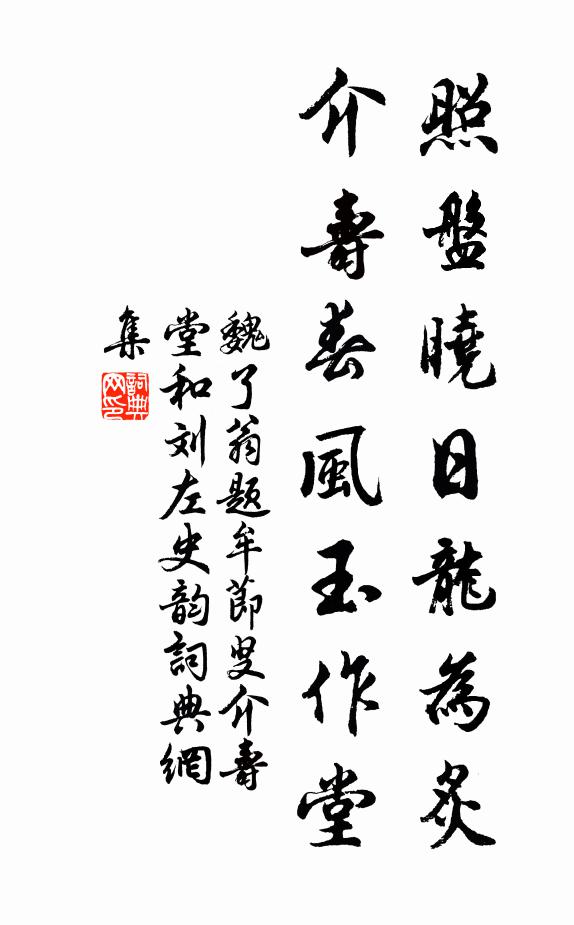 照盤曉日龍為炙
介壽春風玉作堂
魏了翁題牟節叟介壽
堂和刘左史韵詞典網
集
詞典
网印